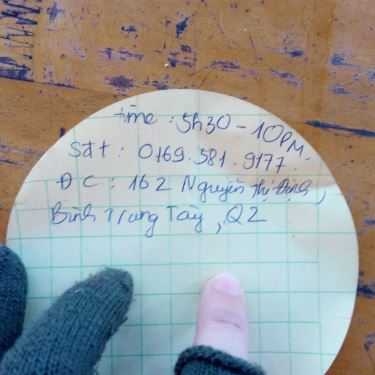 time : 5h30 - 10PM.
sđt : 0169.581.9177.
ĐC : 162 Nguyễn Thị Định,
Bình Trưng Tây, Q2